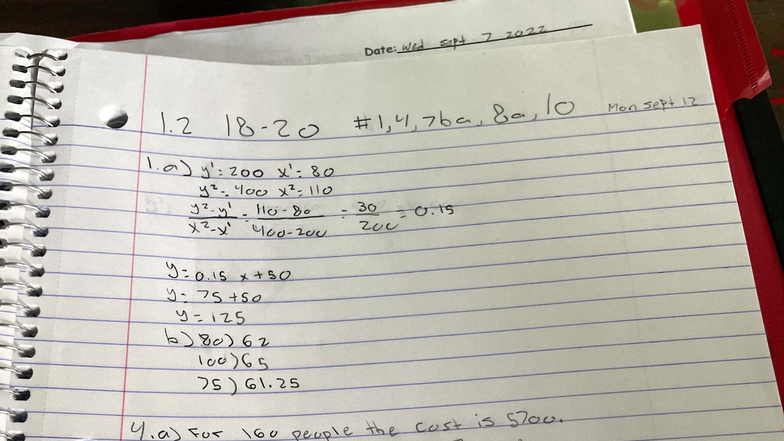 Date: Wed Sept 7 2022
1.2 18-20 #1,4,7ba, 8a, 10 Mon Sept 12
1.a) y': 200 x': 80
y²: 400 x²: 110
y²-y' / x²-x' = 110-80 / 400-200 = 30 / 200 = 0.15
y=0.15 x+50
y= 75+50
y= 125
b) 80) 62
100) 65
75) 61.25
4.a) For 160 people the cost is 5700.